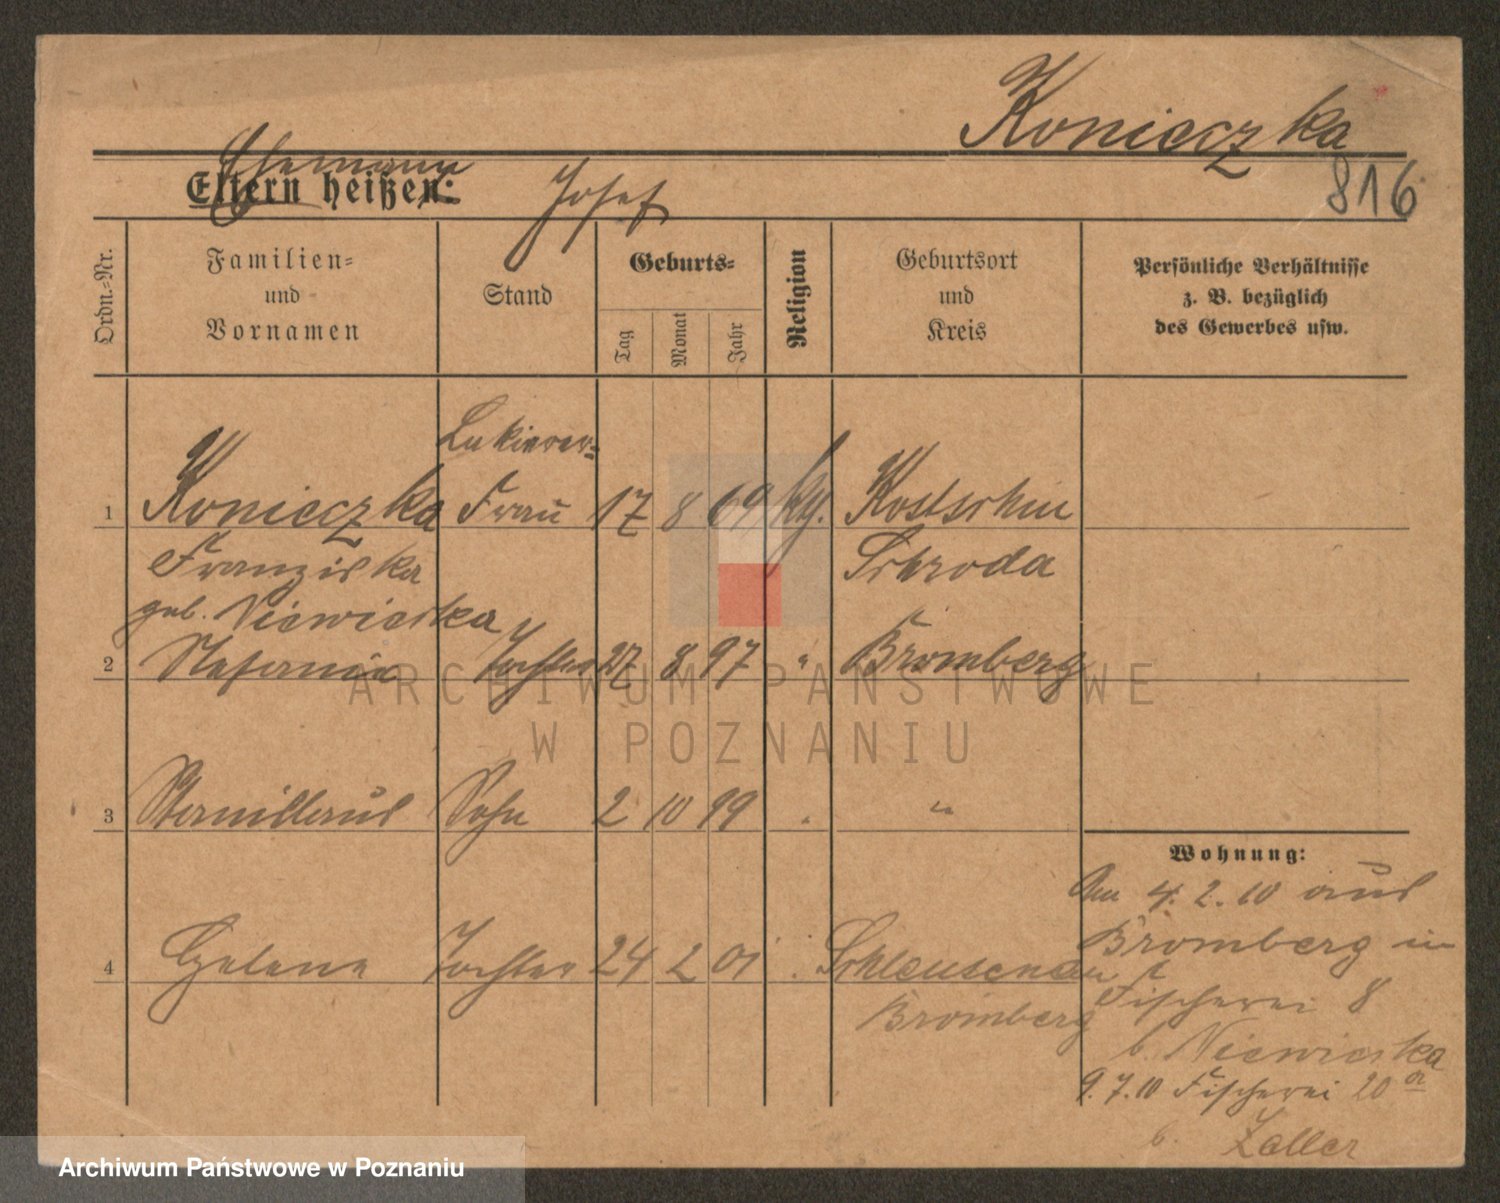 Konieczka
816
Ehemann
Eltern heißen: Josef
Ordn.-Nr.
Familien-
und
Vornamen
Stand
Geburts-
Tag
Monat
Jahr
Religion
Geburtsort
und
Kreis
Persönliche Verhältnisse
z. B. bezüglich
des Gewerbes usw.
1 Konieczka Frau 17 8 69 kg. Kostschin
Franziska Schroda
geb. Niewiecka
2 Stefania Tochter 27 8 97 " Bromberg
3 Stanislaus Sohn 2 10 99 "
Wohnung:
Am 4. 2. 10 aus
Bromberg in
4 Helene Tochter 24 2 01 Schleusenau
Fischerei 8
Bromberg
b. Niewiecka
9. 7. 10 Fischerei 20
b. Zaller
ARCHIWUM PAŃSTWOWE
W POZNANIU
Archiwum Państwowe w Poznaniu